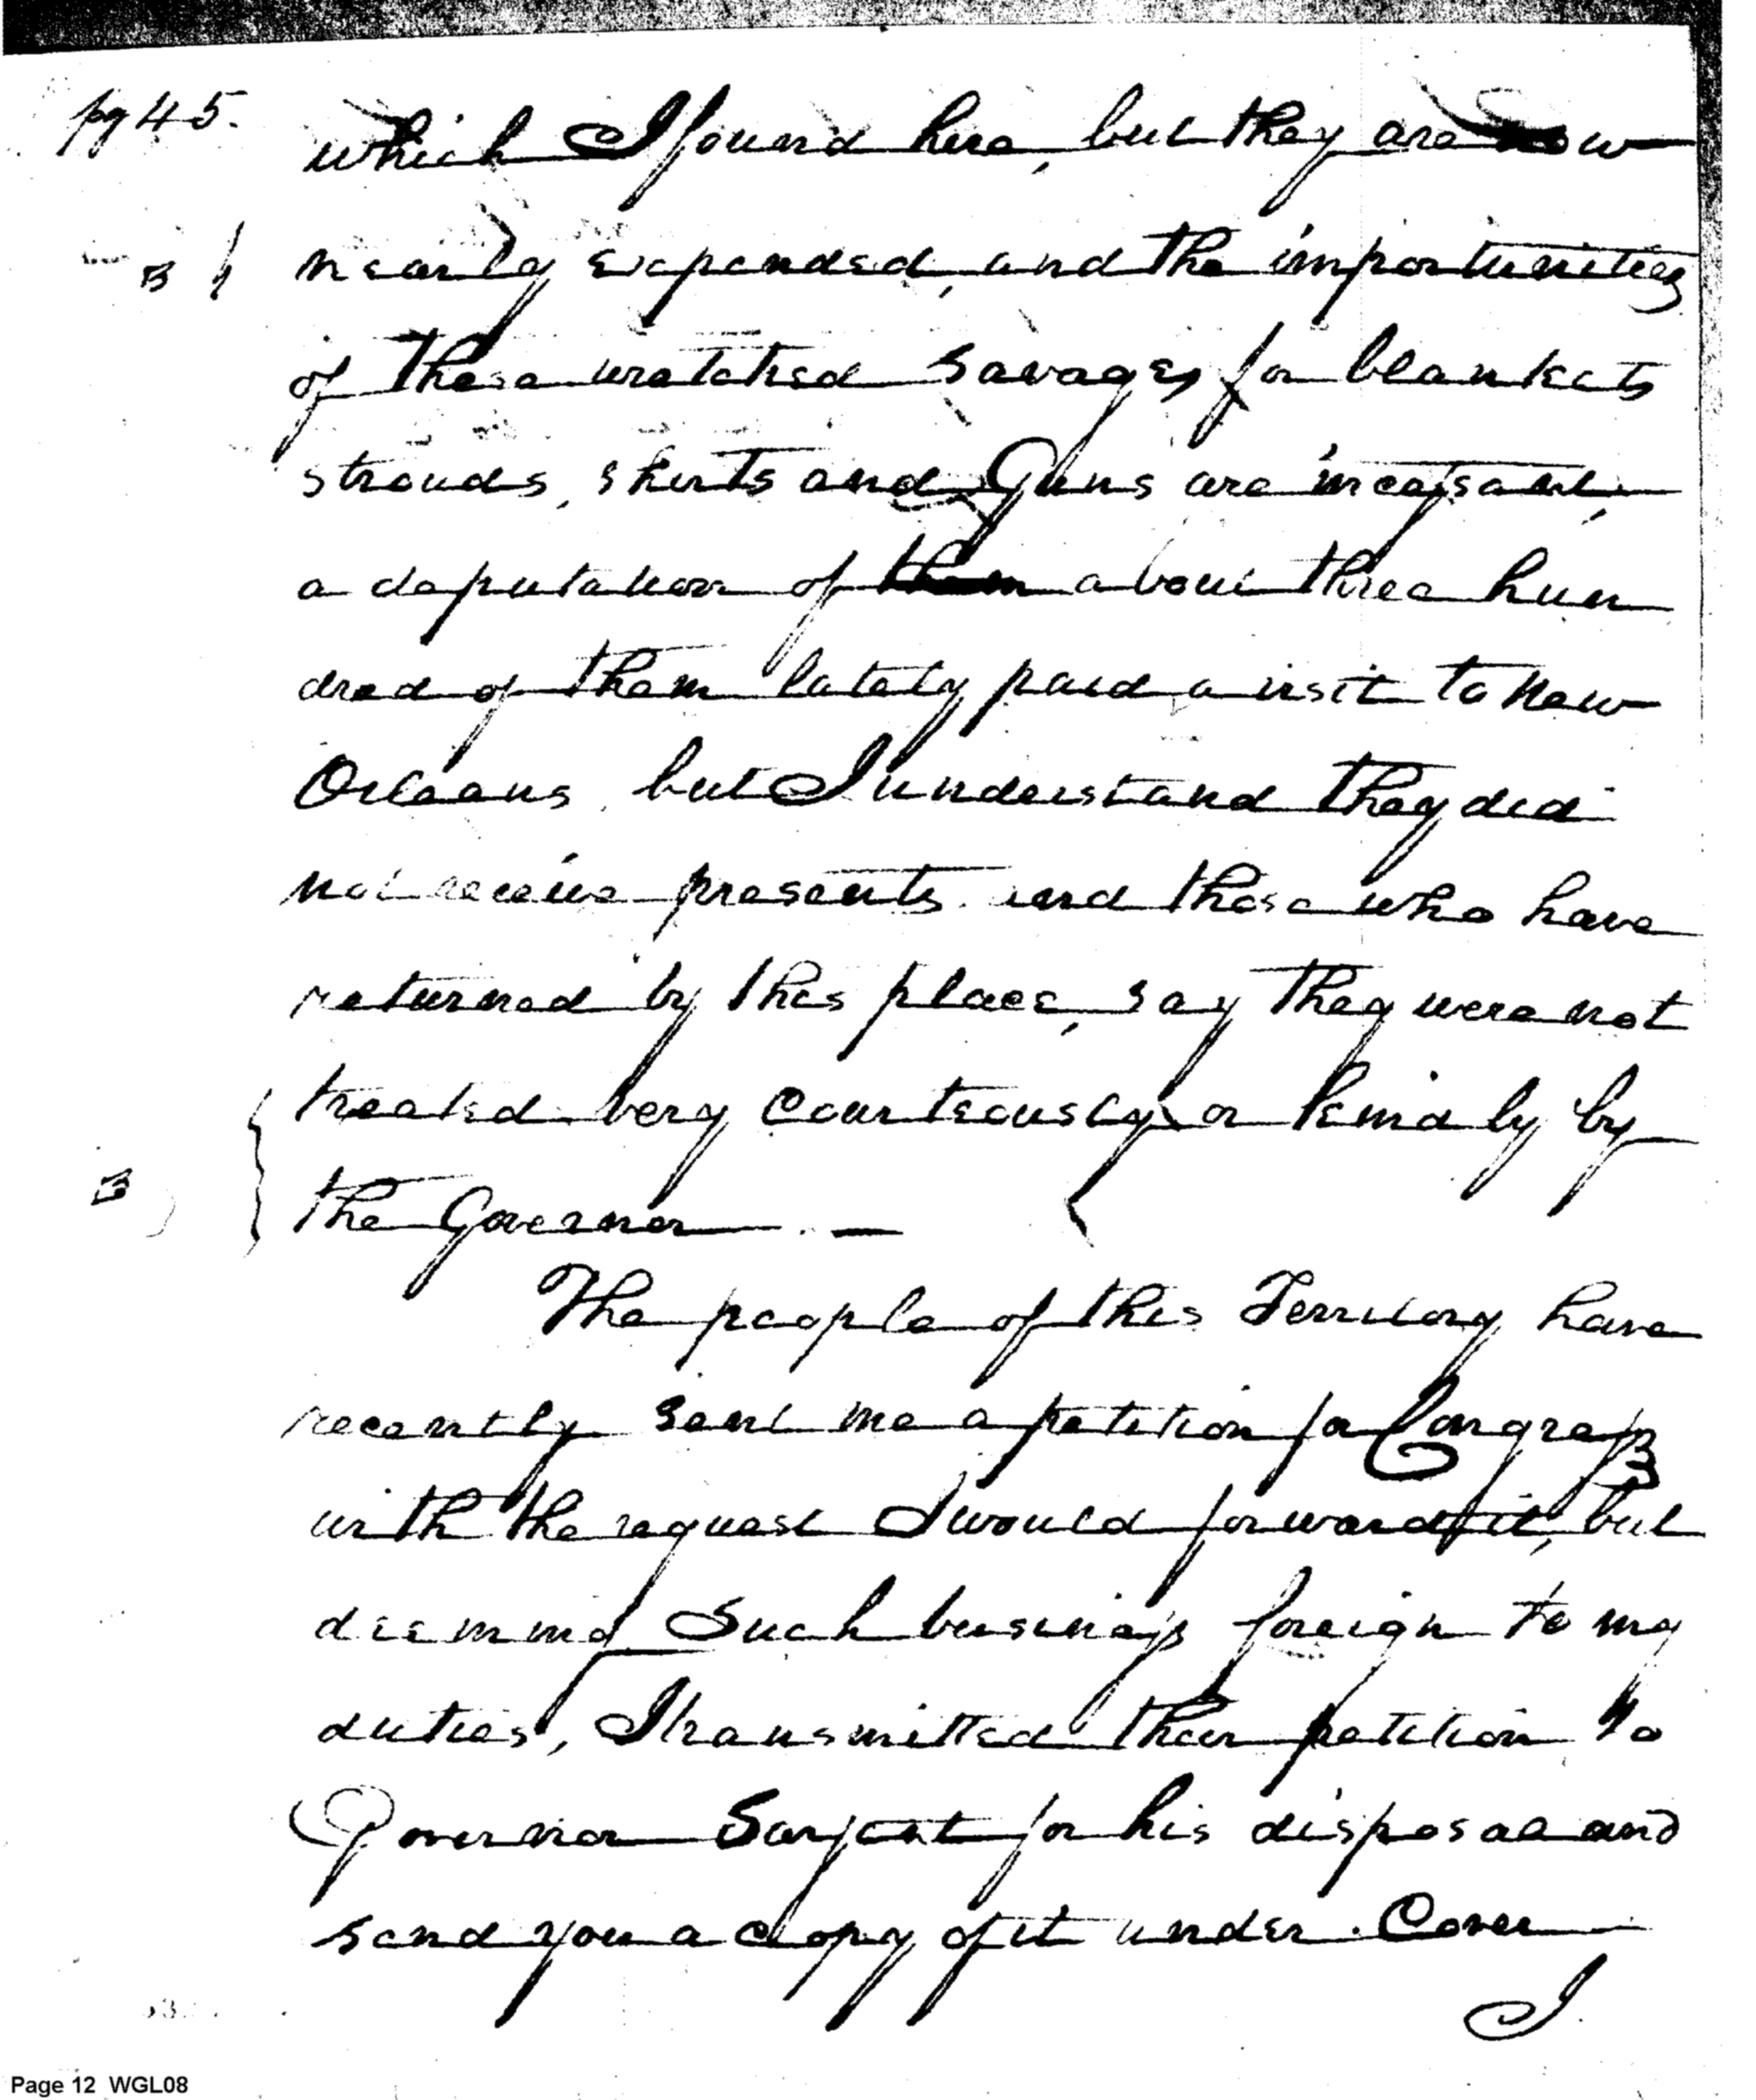 pg 45.
which I found here, but they are now
B
nearly expended, and the importunities
of these wretched Savages for blankets
strouds, shirts and Guns are incessant,
a deputation of them about three hun
dred of them lately paid a visit to New
Orleans, but I understand they did
not receive presents. and those who have
returned by this place, say they were not
treated very courteously or kindly by
B
the Governor. —
The people of this Territory have
recently sent me a petition for Congress
with the request I would forward it, but
deeming Such business foreign to my
duties, I transmitted their petition to
Governor Sarjent for his disposal and
send you a copy of it under Cover
I
Page 12 WGL08